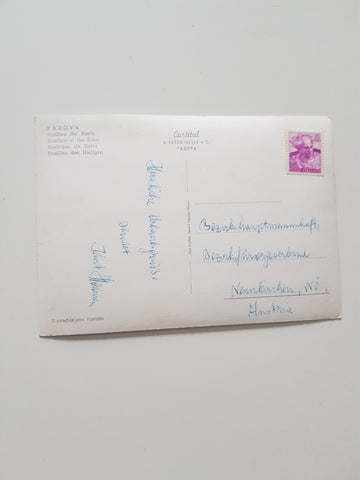 PADOVA
Basilica del Santo
Basilica of the Saint
Basilique du Saint
Basilika des Heiligen
Cartital
PADOVA
Herzliche Urlaubsgrüße
sendet
Bezirkshauptmannschaft,
Bezirksfürsorgeverband
Neunkirchen, NÖ.
Austria
Riproduzione vietata